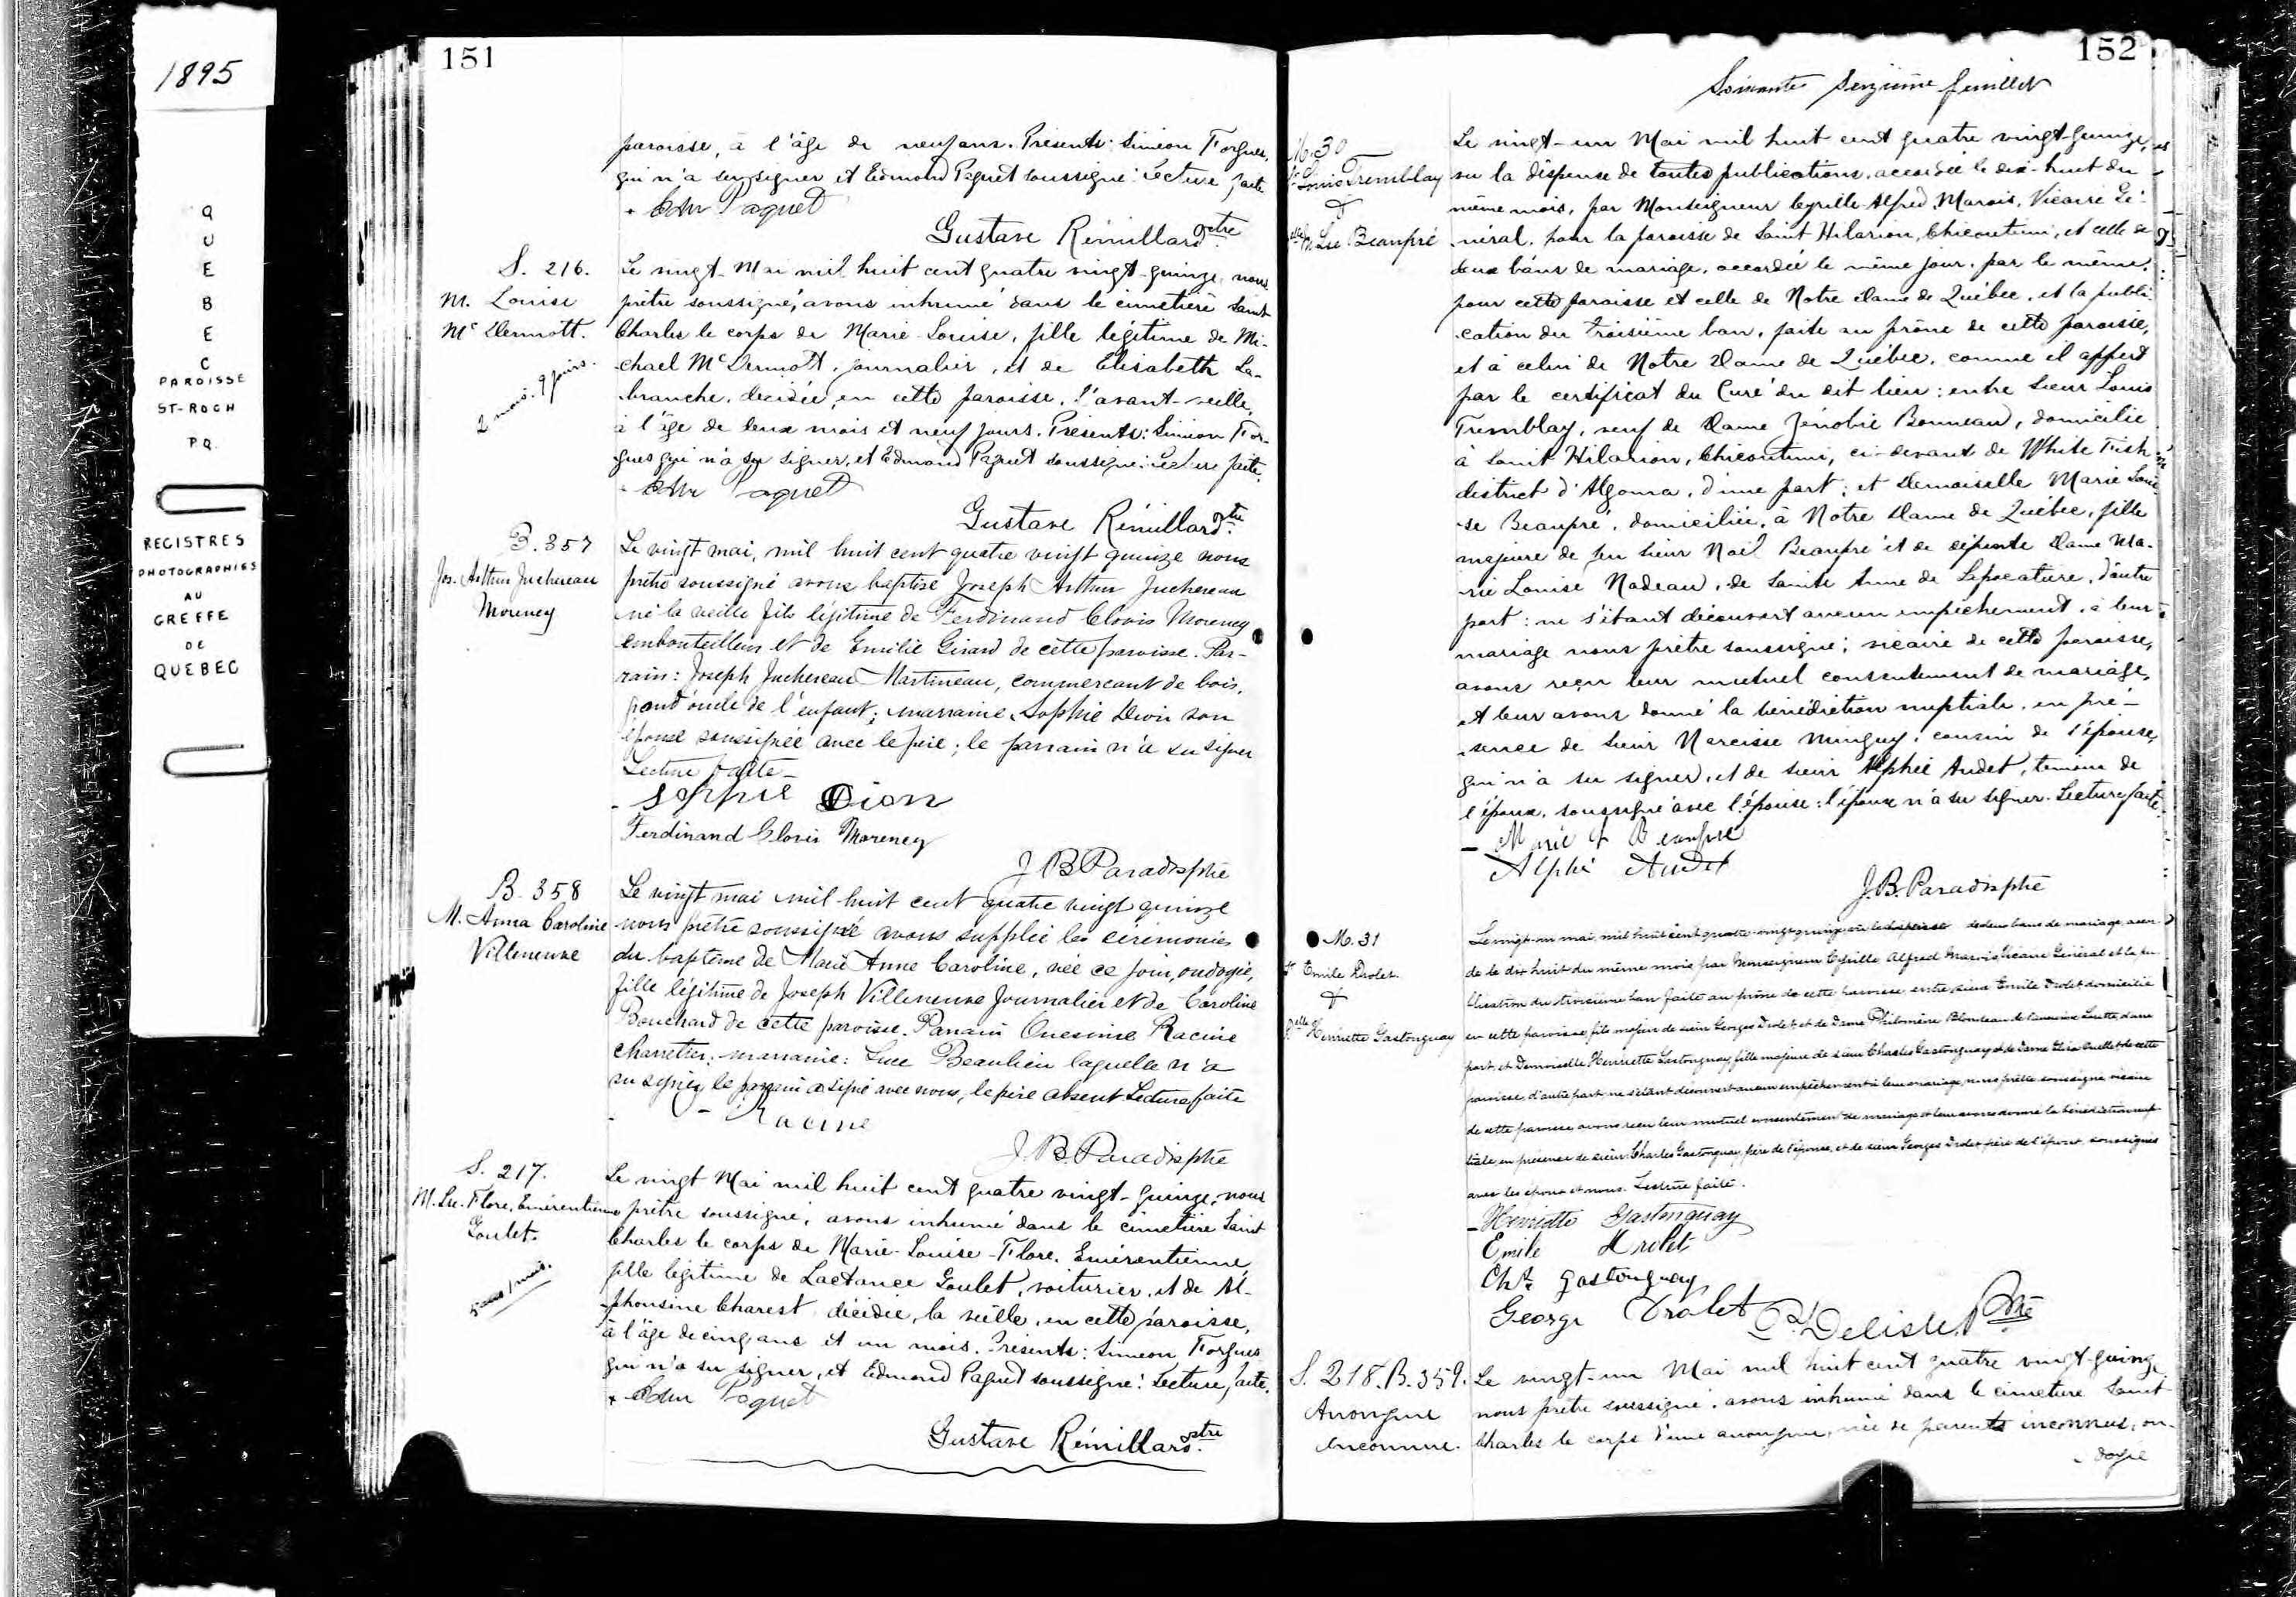 1895
Q
U
E
B
E
C
PAROISSE
ST-ROCH
PQ.
REGISTRES
PHOTOGRAPHIES
AU
GREFFE
DE
QUEBEC
151
paroisse, à l'âge de neuf ans. Présents: Siméon Forgues,
qui n'a su signer et Edmond Paquet soussigné. Lecture faite
Edm Paquet
Gustave Rémillard Ptre
S. 216.
M. Louise
McDermott.
2 mois. 9 jours.
Le vingt-Mai mil huit cent quatre vingt-quinze, nous
prêtre soussigné, avons inhumé dans le cimetière Saint
Charles le corps de Marie-Louise, fille légitime de Mi-
chael McDermott, journalier, et de Elisabeth La-
branche, décédée, en cette paroisse, l'avant-veille,
à l'âge de deux mois et neuf jours. Présents: Siméon For-
gues qui n'a su signer, et Edmond Paquet soussigné: Lecture faite.
Edm Paquet
Gustave Rémillard Ptre
B. 357
Jos. Arthur Juchereau
Morency
Le vingt mai, mil huit cent quatre vingt quinze nous
prêtre soussigné avons baptisé Joseph Arthur Juchereau
né la veille fils légitime de Ferdinand Clovis Morency
embouteilleur et de Emilie Girard de cette paroisse. Par-
rain: Joseph Juchereau Martineau, commercant de bois,
grand'oncle de l'enfant; marraine Sophie Dion son
épouse soussignée avec le père; le parrain n'a su signer
Lecture faite-
Sophie Dion
Ferdinand Clovis Morency
J B Paradis ptre
B. 358
M. Anna Caroline
Villeneuve
Le vingt mai mil huit cent quatre vingt quinze
nous prêtre soussigné avons supplié les cérémonies
du baptême de Marie Anne Caroline, née ce jour, ondoyée,
fille légitime de Joseph Villeneuve Journalier et de Caroline
Bouchard de cette paroisse. Parrain Onesime Racine
charretier; marraine: Luce Beaulieu laquelle n'a
su signer le parrain a signé avec nous, le père absent Lecture faite
Racine
J. B. Paradis ptre
S. 217.
M. Lse. Flore, Emérentienne
Goulet.
5 ans 1 mois.
Le vingt Mai mil huit cent quatre vingt-quinze, nous
prêtre soussigné, avons inhumé dans le cimetière Saint
Charles le corps de Marie-Louise-Flore, Emérentienne,
fille légitime de Lactance Goulet, voiturier, et de Al-
phonsine Charest décédée, la veille, en cette paroisse,
à l'âge de cinq ans et un mois. Présents: Siméon Forgues
qui n'a su signer, et Edmond Paquet soussigné: Lecture faite.
Edm Paquet
Gustave Rémillard Ptre
152
Soixante seizième feuillet
M. 30
Sr Louis Tremblay
&
Delle M Lse Beaupré
Le vingt-un Mai mil huit cent quatre vingt-quinze,
vu la dispense de toutes publications, accordée le dix-huit du
même mois, par Monseigneur Cyrille Alfred Marois, Vicaire Gé-
néral, pour la paroisse de Saint Hilarion, Chicoutimi, et celle de
deux bans de mariage, accordée le même jour, par le même,
pour cette paroisse et celle de Notre Dame de Québec, et la publi-
cation du troisième ban, faite au prône de cette paroisse,
et à celui de Notre Dame de Québec, comme il appert
par le certificat du Curé du dit lieu: entre Sieur Louis
Tremblay, veuf de Dame Zénobie Bonneau, domicilié
à Saint Hilarion, Chicoutimi, ci-devant de White Fish
district d'Algoma, d'une part; et Demoiselle Marie Loui-
se Beaupré, domiciliée, à Notre Dame de Québec, fille
majeure de feu Sieur Noël Beaupré et de défunte Dame Ma-
rie Louise Nadeau, de Sainte Anne de Lapocatière, d'autre
part: ne s'étant découvert aucun empêchement, à leur
mariage nous prêtre soussigné; vicaire de cette paroisse,
avons reçu leur mutuel consentement de mariage,
et leur avons donné la bénédiction nuptiale, en pré-
sence de Sieur Narcisse Minguy, cousin de l'épouse,
qui n'a su signer, et de Sieur Alphée Audet, témoin de
l'époux, soussigné avec l'épouse: l'époux n'a su signer. Lecture faite.
Marie L Beaupré
Alphé Audet
J. B. Paradis ptre
M. 31
Sr Emile Drolet
&
Delle Henriette Gastonguay
Le vingt-un mai mil huit cent quatre-vingt-quinze vu la dispense de deux bans de mariage accor-
dée le dix huit du même mois par Monseigneur Cyrille Alfred Marois Vicaire Général et la pu-
blication du troisième ban faite au prône de cette paroisse entre Sieur Emile Drolet domicilié
en cette paroisse fils majeur de sieur Georges Drolet et de Dame Philomène Blondeau de l'ancienne Lorette, d'une
part, et Demoiselle Henriette Gastonguay, fille majeure de sieur Charles Gastonguay et de Dame Eliza Ouellet de cette
paroisse, d'autre part ne s'étant découvert aucun empêchement à leur mariage, nous prêtre soussigné vicaire
de cette paroisse avons reçu leur mutuel consentement de mariage et leur avons donné la bénédiction nup-
tiale en présence de sieur Charles Gastonguay père de l'épouse, et de sieur Georges Drolet père de l'époux soussignés
avec les époux et nous. Lecture faite.
Henriette Gastonguay
Emile Drolet
Chs Gastonguay
George Drolet
P. Delisle Ptre
S. 218. B. 359.
Anonyme
Inconnue.
Le vingt-un Mai mil huit cent quatre vingt-quinze,
nous prêtre soussigné, avons inhumé dans le cimetière Saint
Charles le corps d'une anonyme, née de parents inconnus, on-
doyée